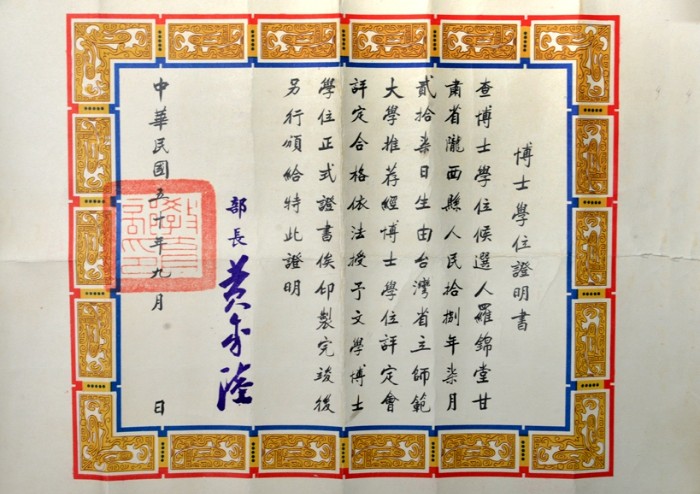 博士學位證明書
查博士學位候選人羅錦堂甘
肅省隴西縣人民拾捌年柒月
貳拾柒日生由台灣省立師範
大學推荐經博士學位評定會
評定合格依法授予文學博士
學位正式證書俟印製完竣後
另行頒給特此證明
部長 黃季陸
中華民國五十年九月 日